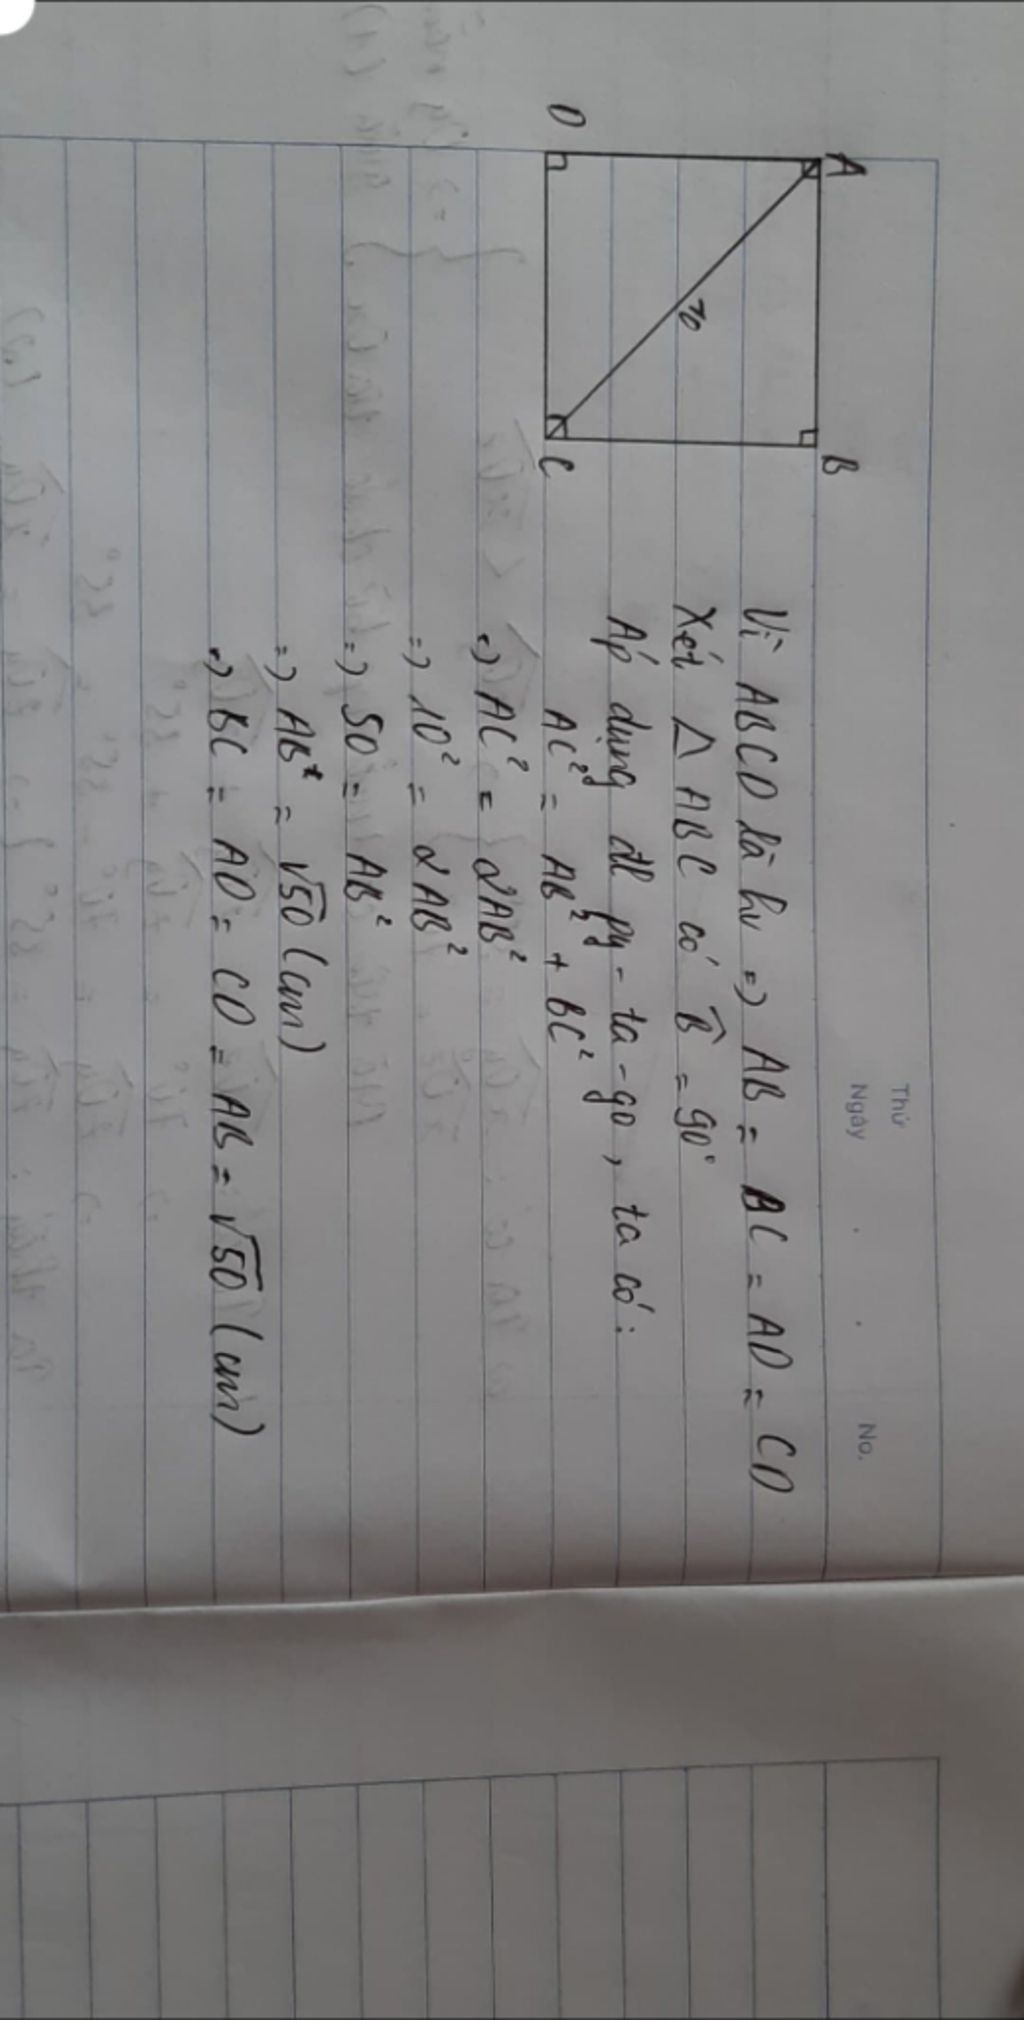 Thứ
Ngày . . No.
A B
10
D C
Vì ABCD là hv => AB = BC = AD = CD
Xét △ ABC có B̂ = 90°
Áp dụng đl py-ta-go, ta có:
AC² = AB² + BC²
=> AC² = 2AB²
=> 10² = 2AB²
=> 50 = AB²
=> AB = √50 (cm)
=> BC = AD = CD = AB = √50 (cm)